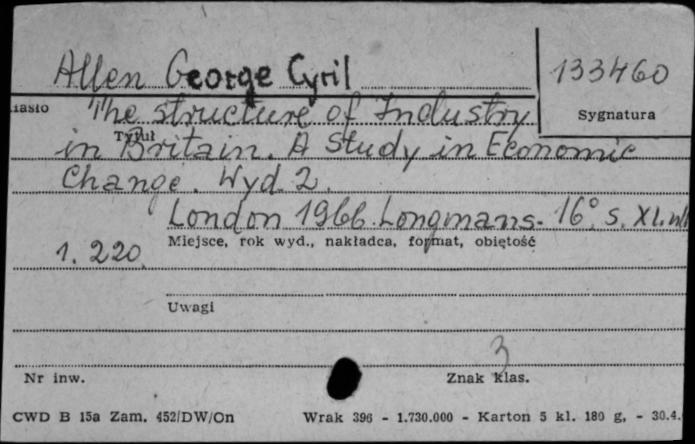 Allen George Cyril
133460
Sygnatura
The structure of Industry
Tytuł
in Britain. A Study in Economic
Change. Wyd. 2.
London 1966 Longmans. 16°. s. XI.
Miejsce, rok wyd., nakładca, format, objętość
1. 220.
Uwagi
3
Nr inw.
Znak klas.
CWD B 15a Zam. 452/DW/On
Wrak 396 - 1.730.000 - Karton 5 kl. 180 g, - 30.4.